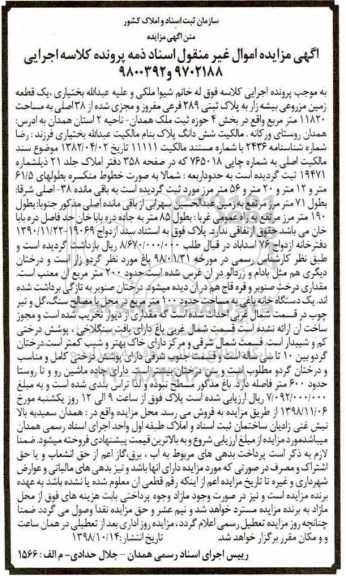 سازمان ثبت اسناد و املاک کشور
متن آگهی مزایده
آگهی مزایده اموال غیر منقول اسناد ذمه پرونده کلاسه اجرایی
۹۷۰۲۱۸۸ و ۹۸۰۰۳۹۲
به موجب پرونده اجرایی کلاسه فوق له خانم شیوا ملکی و علیه عبدالله بختیاری، یک قطعه
زمین مزروعی بیشه زار به پلاک ثبتی ۲۸۹ فرعی مفروز و مجزی شده از ۳۸ اصلی به مساحت
۱۱۸۲۰ متر مربع واقع در بخش ۴ حوزه ثبت ملک همدان- ناحیه ۲ استان همدان به آدرس:
همدان روستای ورکانه. مالکیت شش دانگ پلاک بنام مالکیت عبدالله بختیاری فرزند: رضا
شماره شناسنامه ۲۴۳۶ با شماره مستند مالکیت ۱۱۱۱۱ تاریخ ۱۳۸۲/۰۴/۰۲ موضوع سند
مالکیت اصلی به شماره چاپی ۷۶۵۰۱۸ که در صفحه ۳۵۸ دفتر املاک جلد ۲۱ ذیلشماره
۱۹۴۷۱ ثبت گردیده است به حدوداربعه: شمالا به صورت خطوط منکسره بطولهای ۶۱/۵
متر و ۱۲ متر و ۲۰ متر و ۵۶ متر مرز مورد ثبت گردیده است به باقی مانده ۳۸- اصلی شرقا:
بطول ۷۱ متر مرز مرتفع به زمین عبدالحسین سهرابی از باقی مانده اصلی مذکور جنوبا: بطول
۱۹۰ متر مرز مرتفع به راه عمومی غربا: بطول ۸۵ متر به جاده دره بابا خان حد فاصل دره بابا
خان می باشد حقوق ارتفاقی ندارد. پلاک فوق به استناد سند ازدواج ۱۹۰۶۹-۱۳۹۰/۱۱/۲۲
دفترخانه ازدواج ۷۶ اسدآباد در قبال طلب ۸/۶۷۰/۰۰۰/۰۰۰ ریال بازداشت گردیده است و
طبق نظر کارشناس رسمی در مورخه ۹۸/۰۱/۳۱ باغ مورد نظر گردو زار است و درختان
دیگری هم مثل بادام و زردآلو در آن غرس شده است حدود ۲۰۰ متر مربع آن معتب است.
مقداری درخت صنوبر و قره قاج هم در آن دیده میشود. درختان صنوبر به تازگی برداشت شده
اند. یک دستگاه خانه باغی به مساحت حدود ۱۰۰ متر مربع در محل با مصالح سنگ، گل و تیر
چوب در قسمت شمال غربی احداث شده است که مقداری از دیوار تخریب شده است و مجوز
ساخت آن ارائه نشده است قسمت شمال غربی باغ دارای بافت سنگلاخی، پوشش درختی
کم و شیبدار است. قسمت شمال شرقی و مرکز دارای خاک بهتر و شیب کمتر است. درختان
گردو بین ۱۰ تا ساله است و قسمت جنوب شرقی دارای پوشش درختی کامل و مناسب
و درختان گردو مطلوب است و پس درختان بیشتر است. دارای جاده ماشین رو و تا روستا
حدود ۶۰۰ متر فاصله دارد. باغ مذکور مسطح نبوده و لذا تراس بندی شده است و به مبلغ
۷/۰۹۲/۰۰۰/۰۰۰ ریال ارزیابی شده است پلاک فوق از ساعت ۹ الی ۱۲ روز یکشنبه مورخ
۱۳۹۸/۱۱/۰۶ از طریق مزایده به فروش می رسد. محل مزایده واقع در: همدان سعیدیه بالا
نبش غنی زادیان ساختمان ثبت اسناد و املاک طبقه اول واحد اجرای اسناد رسمی همدان
میباشد مورد مزایده از مبلغ ارزیابی شروع و به بالاترین قیمت پیشنهادی فروخته میشود. ضمنا
لازم به ذکر است پرداخت بدهی های مربوط به آب، برق، گاز اعم از حق انشعاب و یا حق
اشتراک و مصرف در صورتی که مورد مزایده دارای آنها باشد و نیز بدهی های مالیاتی و عوارض
شهرداری و غیره تا تاریخ مزایده اعم از اینکه رقم قطعی آن معلوم شده یا نشده باشد به عهده
برنده مزایده است و نیز در صورت وجود مازاد وجوه پرداختی بابت هزینه های فوق از محل
مازاد به برنده مزایده مسترد خواهد شد و نیم عشر و حق مزایده نقدا وصول می گردد ضمنا
چنانچه روز مزایده تعطیل رسمی اعلام گردد، مزایده روز اداری بعد از تعطیلی در همان ساعت
و و مکان مقرر برگزار خواهد شد. تاریخ انتشار: ۱۳۹۸/۱۰/۱۴
رییس اجرای اسناد رسمی همدان - جلال حدادی- م الف: ۱۵۶۶